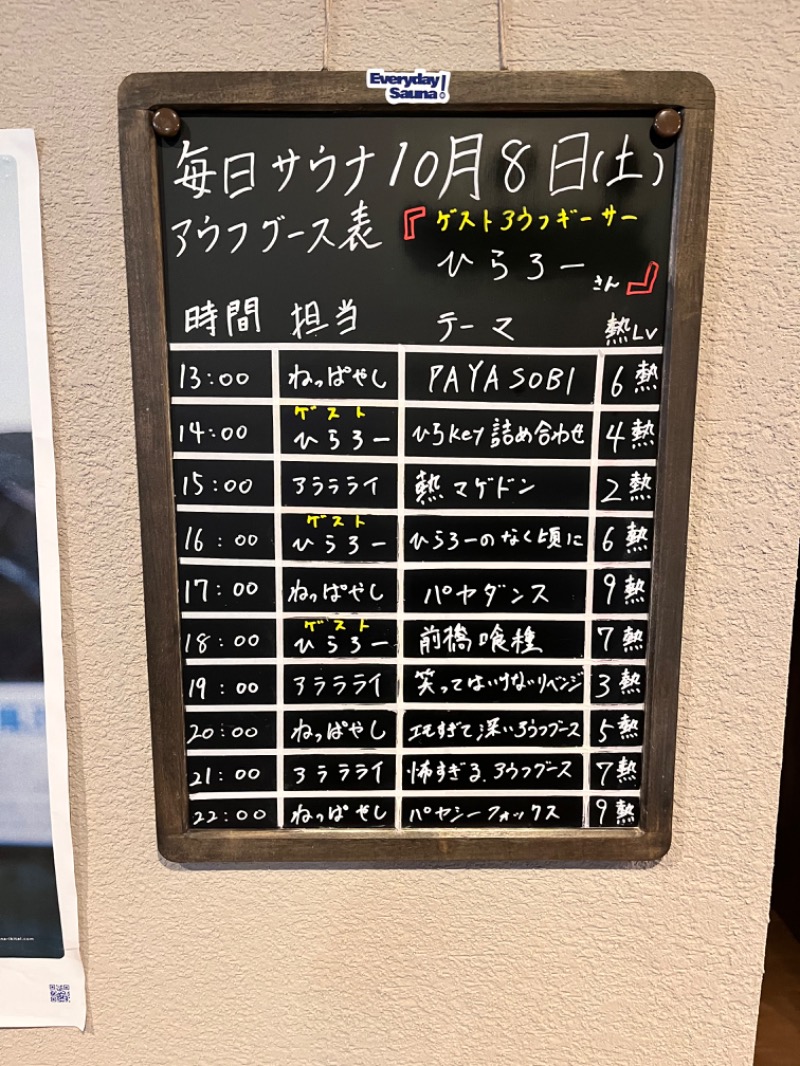 Everyday
Sauna!
毎日サウナ 10月8日(土)
アウフグース表 『ゲストアウフギーサー
ひらろー さん』
時間 担当 テーマ 熱Lv
13:00 ねっぱやし PAYASOBI 6熱
ゲスト
14:00 ひらろー ひらkey詰め合わせ 4熱
15:00 アラララライ 熱マゲドン 2熱
ゲスト
16:00 ひらろー ひらろーのなく頃に 6熱
17:00 ねっぱやし パヤダンス 9熱
ゲスト
18:00 ひらろー 前橋喰種 7熱
19:00 アララライ 笑ってはいけないリベンジ 3熱
20:00 ねっぱやし エモすぎて深いアウフグース 5熱
21:00 アララライ 怖すぎる.アウフグース 7熱
22:00 ねっぱやし パヤシーフォックス 9熱